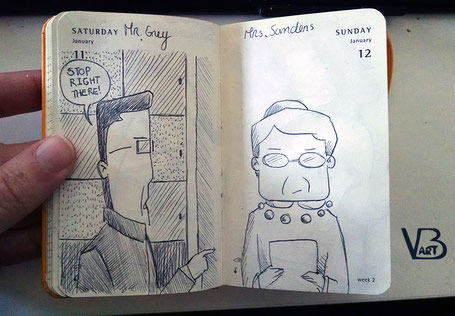 SATURDAY Mr. Grey
January
11
STOP
RIGHT
THERE!
Mrs. Sanders SUNDAY
January
12
week 2
VB
ART